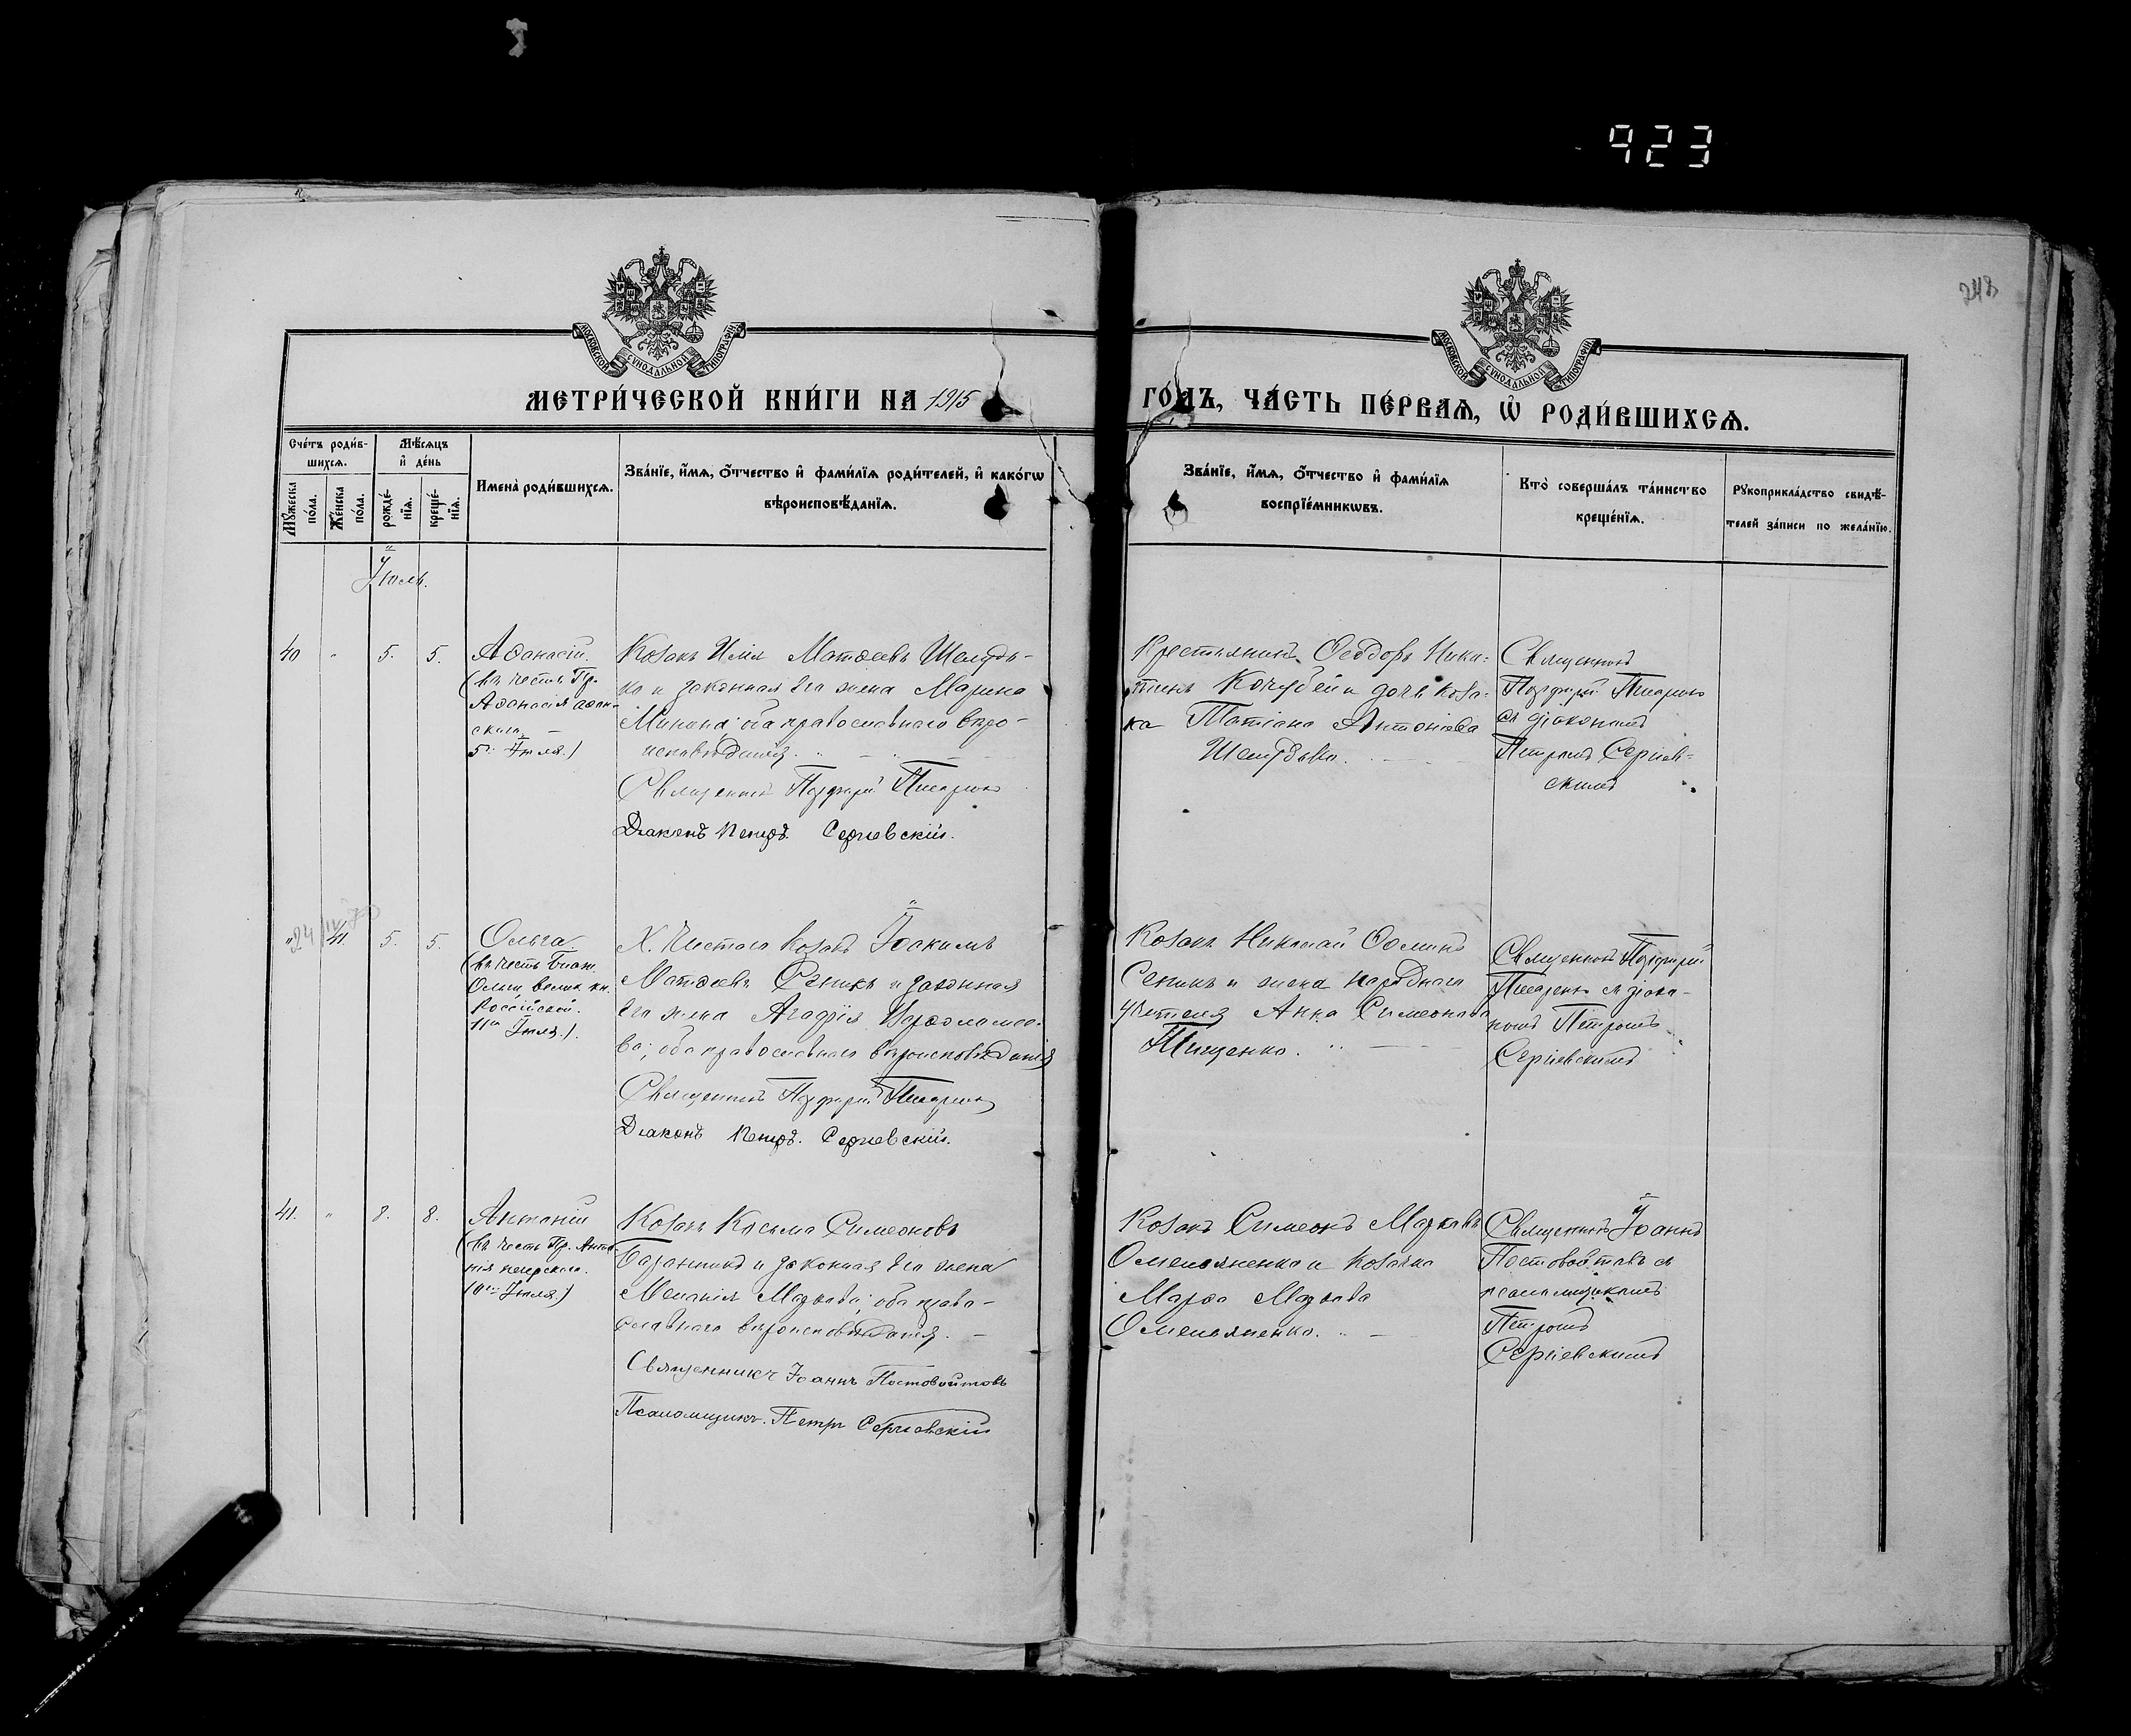 923
248
МОСКОВСКОЙ СѴНОДАЛЬНОЙ ТИПОГРАФІИ
МОСКОВСКОЙ СѴНОДАЛЬНОЙ ТИПОГРАФІИ
МЕТРИ́ЧЕСКОЙ КНИ́ГИ НА 1915
ГО́ДЪ, ЧА́СТЬ ПЕ́РВАѦ, Ѽ РОДИ́ВШИХСѦ.
Сче́тъ роди́в-
шихсѧ.
Мꙋ́жеска
по́ла.
Же́нска
по́ла.
Мѣ́сѧцъ
и҆ де́нь
рожде́-
нїѧ.
креще́-
нїѧ.
Имена̀ роди́вшихсѧ.
Зва́нїе, и҆́мѧ, ѻ҆́тчество и҆ фами́лїѧ роди́телей, и҆ како́гѡ
вѣроисповѣ́данїѧ.
Зва́нїе, и҆́мѧ, ѻ҆́тчество и҆ фами́лїѧ
воспрїе́мникѡвъ.
Кто̀ соверша́лъ та́инство
креще́нїѧ.
Рꙋкоприкла́дство свидѣ́-
телей за́писи по жела́нїю.
Іюль.
40 " 5. 5.
Аѳанасій.
(въ честь Пр.
Аѳанасія аѳон-
скаго
5го Іюля.)
Козакъ Илія Матѳеевъ Шелудь-
ко и законная его жена Марина
Минина; оба православнаго вѣро-
исповѣданія.
Священникъ Порфирій
Діаконъ Петръ Сергіевскій.
Крестьянинъ Ѳеодоръ Ники-
тинъ Кочубей и дочь коза-
ка Татіана Антоніева
Шелудько.
Священникъ
Порфирій
съ діакономъ
Петромъ Сергіев-
скимъ
" 41. 5. 5.
Ольга
(въ честь Благ.
Ольги велик. кн.
Россійской.
11го Іюля.)
Х. Чистаго козакъ Іоакимъ
Матѳеевъ Сеникъ и законная
его жена Агафія Варѳоломее-
ва; оба православнаго вѣроисповѣданія
Священникъ Порфирій
Діаконъ Петръ Сергіевскій.
Козакъ Николай Ѳоминъ
Сеникъ и жена народнаго
учителя Анна Симеонова
Тищенко.
Священникъ Порфирій
съ діако-
номъ Петромъ
Сергіевскимъ
41. " 8. 8.
Антоній
(въ честь Пр. Анто-
нія печерскаго.
10го Іюля.)
Козакъ Косьма Симеоновъ
Баранникъ и законная его жена
Меланія Маркова; оба право-
славнаго вѣроисповѣданія.
Священникъ Іоаннъ Постовойтовъ
Псаломщикъ Петръ Сергіевскій
Козакъ Симеонъ Марковъ
Омельяненко и козачка
Марѳа Маркова
Омельяненко.
Священникъ Іоаннъ
Постовойтовъ съ
псаломщикомъ
Петромъ
Сергіевскимъ